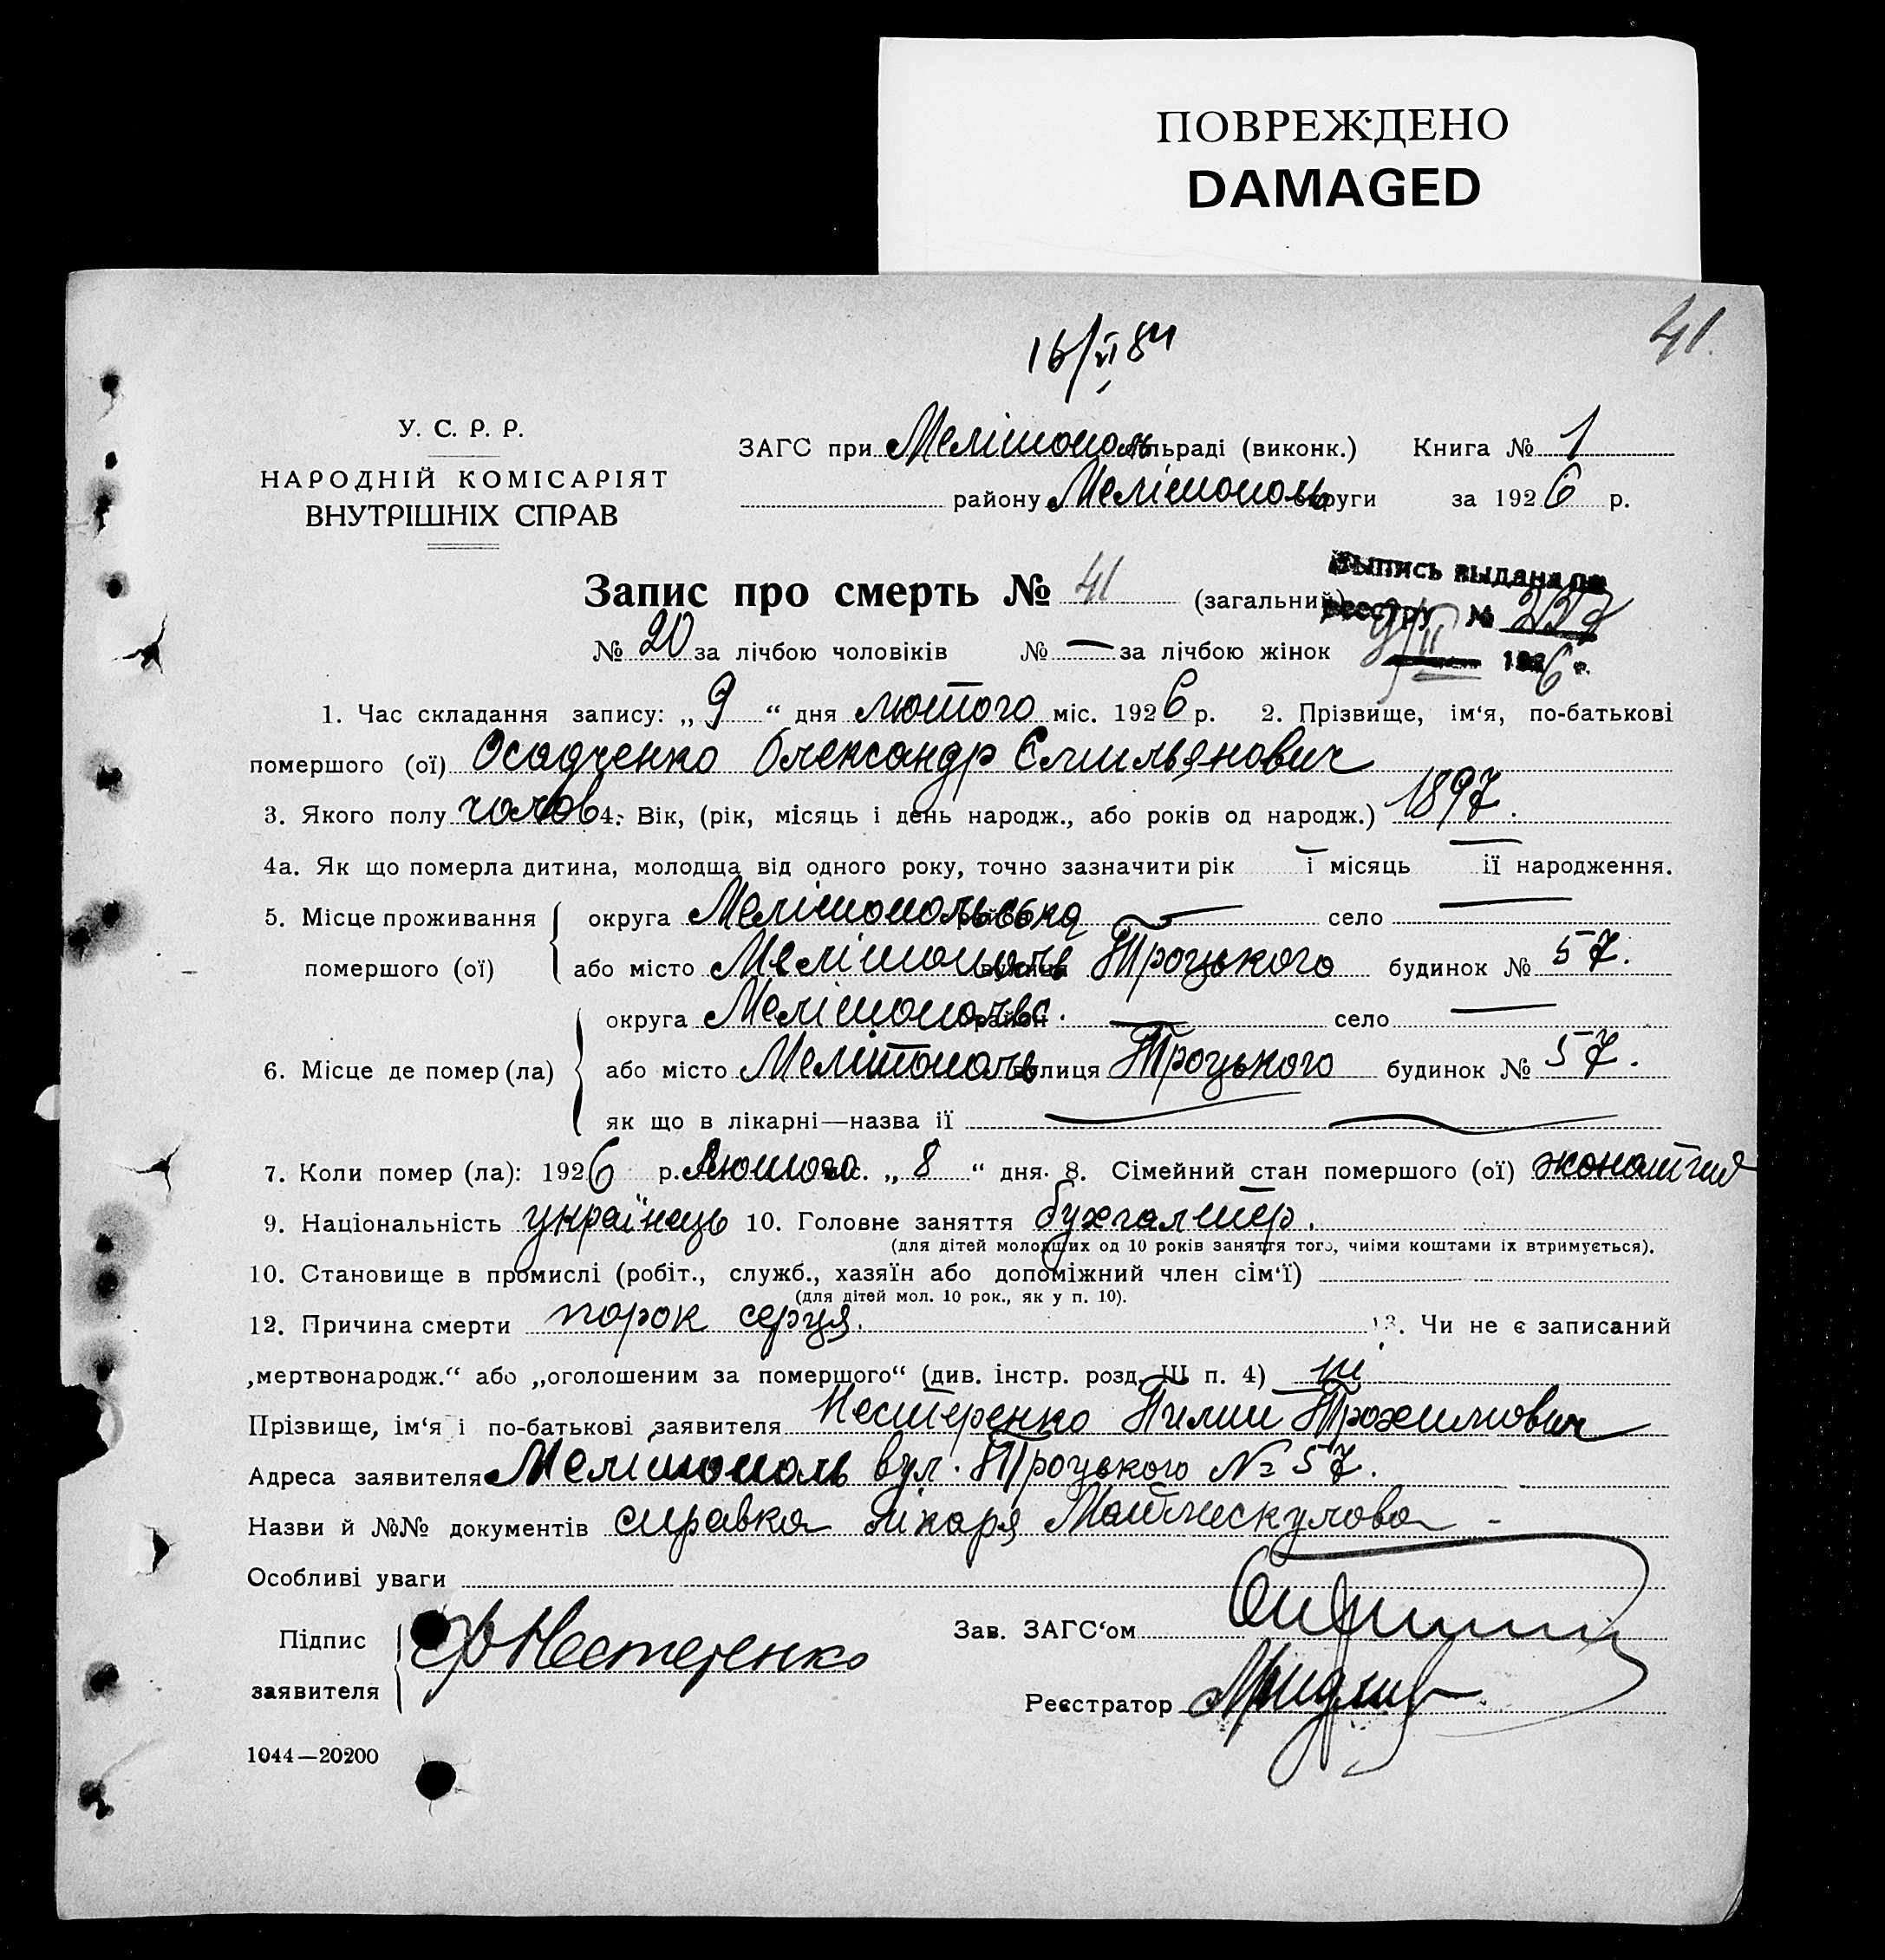 ПОВРЕЖДЕНО
DAMAGED
41.
16/VI 84
У. С. Р. Р.
НАРОДНІЙ КОМІСАРІЯТ
ВНУТРІШНІХ СПРАВ
ЗАГС при Мелітополь ільраді (виконк.) Книга № 1
району Мелітополь округи за 1926 р.
Запис про смерть № 41 (загальний)
Выпись выдана по
реестру №
9/II 1926 г.
№ 20 за лічбою чоловіків № — за лічбою жінок
1. Час складання запису: „9“ дня лютого міс. 1926 р. 2. Прізвище, ім‘я, по-батькові
помершого (ої) Осадченко Олександр Омильянович
3. Якого полу чолов 4. Вік, (рік, місяць і день народж., або років од народж.) 1897.
4а. Як що померла дитина, молодща від одного року, точно зазначити рік — і місяць — її народження.
5. Місце проживання помершого (ої) округа Мелітопольська район — село —
або місто Мелітополь вулиця Троцького будинок № 57.
6. Місце де помер (ла) округа Мелітопольс. район — село —
або місто Мелітополь вулиця Троцького будинок № 57.
як що в лікарні—назва її —
7. Коли помер (ла): 1926 р. Лютого міс. „8“ дня. 8. Сімейний стан помершого (ої)
9. Національність українець 10. Головне заняття бухгалтер.
(для дітей молодщих од 10 років заняття того, чиїми коштами їх втримується).
10. Становище в промислі (робіт., служб., хазяїн або допоміжний член сім‘ї)
(для дітей мол. 10 рок., як у п. 10).
12. Причина смерти порок серця. 13. Чи не є записаний
„мертвонародж.“ або „оголошеним за помершого“ (див. інстр. розд. III п. 4) ні
Прізвище, ім‘я і по-батькові заявителя Нестеренко Пилип Трохимович
Адреса заявителя Мелітополь вул. Троцького № 57.
Назви й №№ документів справка лікаря
Особливі уваги
Підпис заявителя Нестеренко
Зав. ЗАГС‘ом
Реєстратор
1044—20200